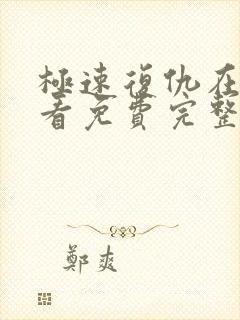 極速復仇在
看免費完整
鄭爽